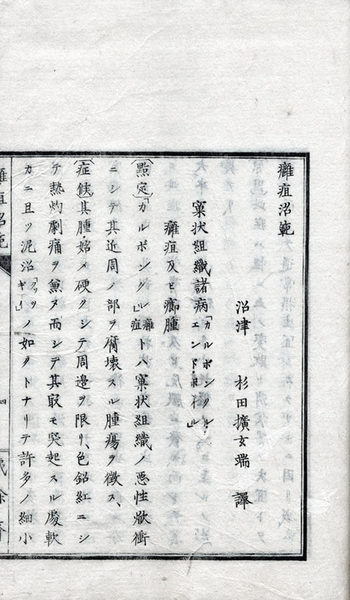 癰疽治範
沼津　杉田擴玄端　譯
窠狀組織諸病
癰疽及ヒ癤腫
(點定)「カルボンクル」癰疽トハ窠狀組織ノ悪性焮衝
ニシテ其近周ノ部ヲ腐壊スル腫瘍ヲ徴ス、
(症候)其腫始メ硬クシテ周邊ヲ限リ色銘紅ニシ
テ熱灼劇痛ヲ兼ヌ而シテ其最モ突起スル處軟
カニ且ツ泥沼ノ如クトナリテ許多ノ細小
癰疽治範